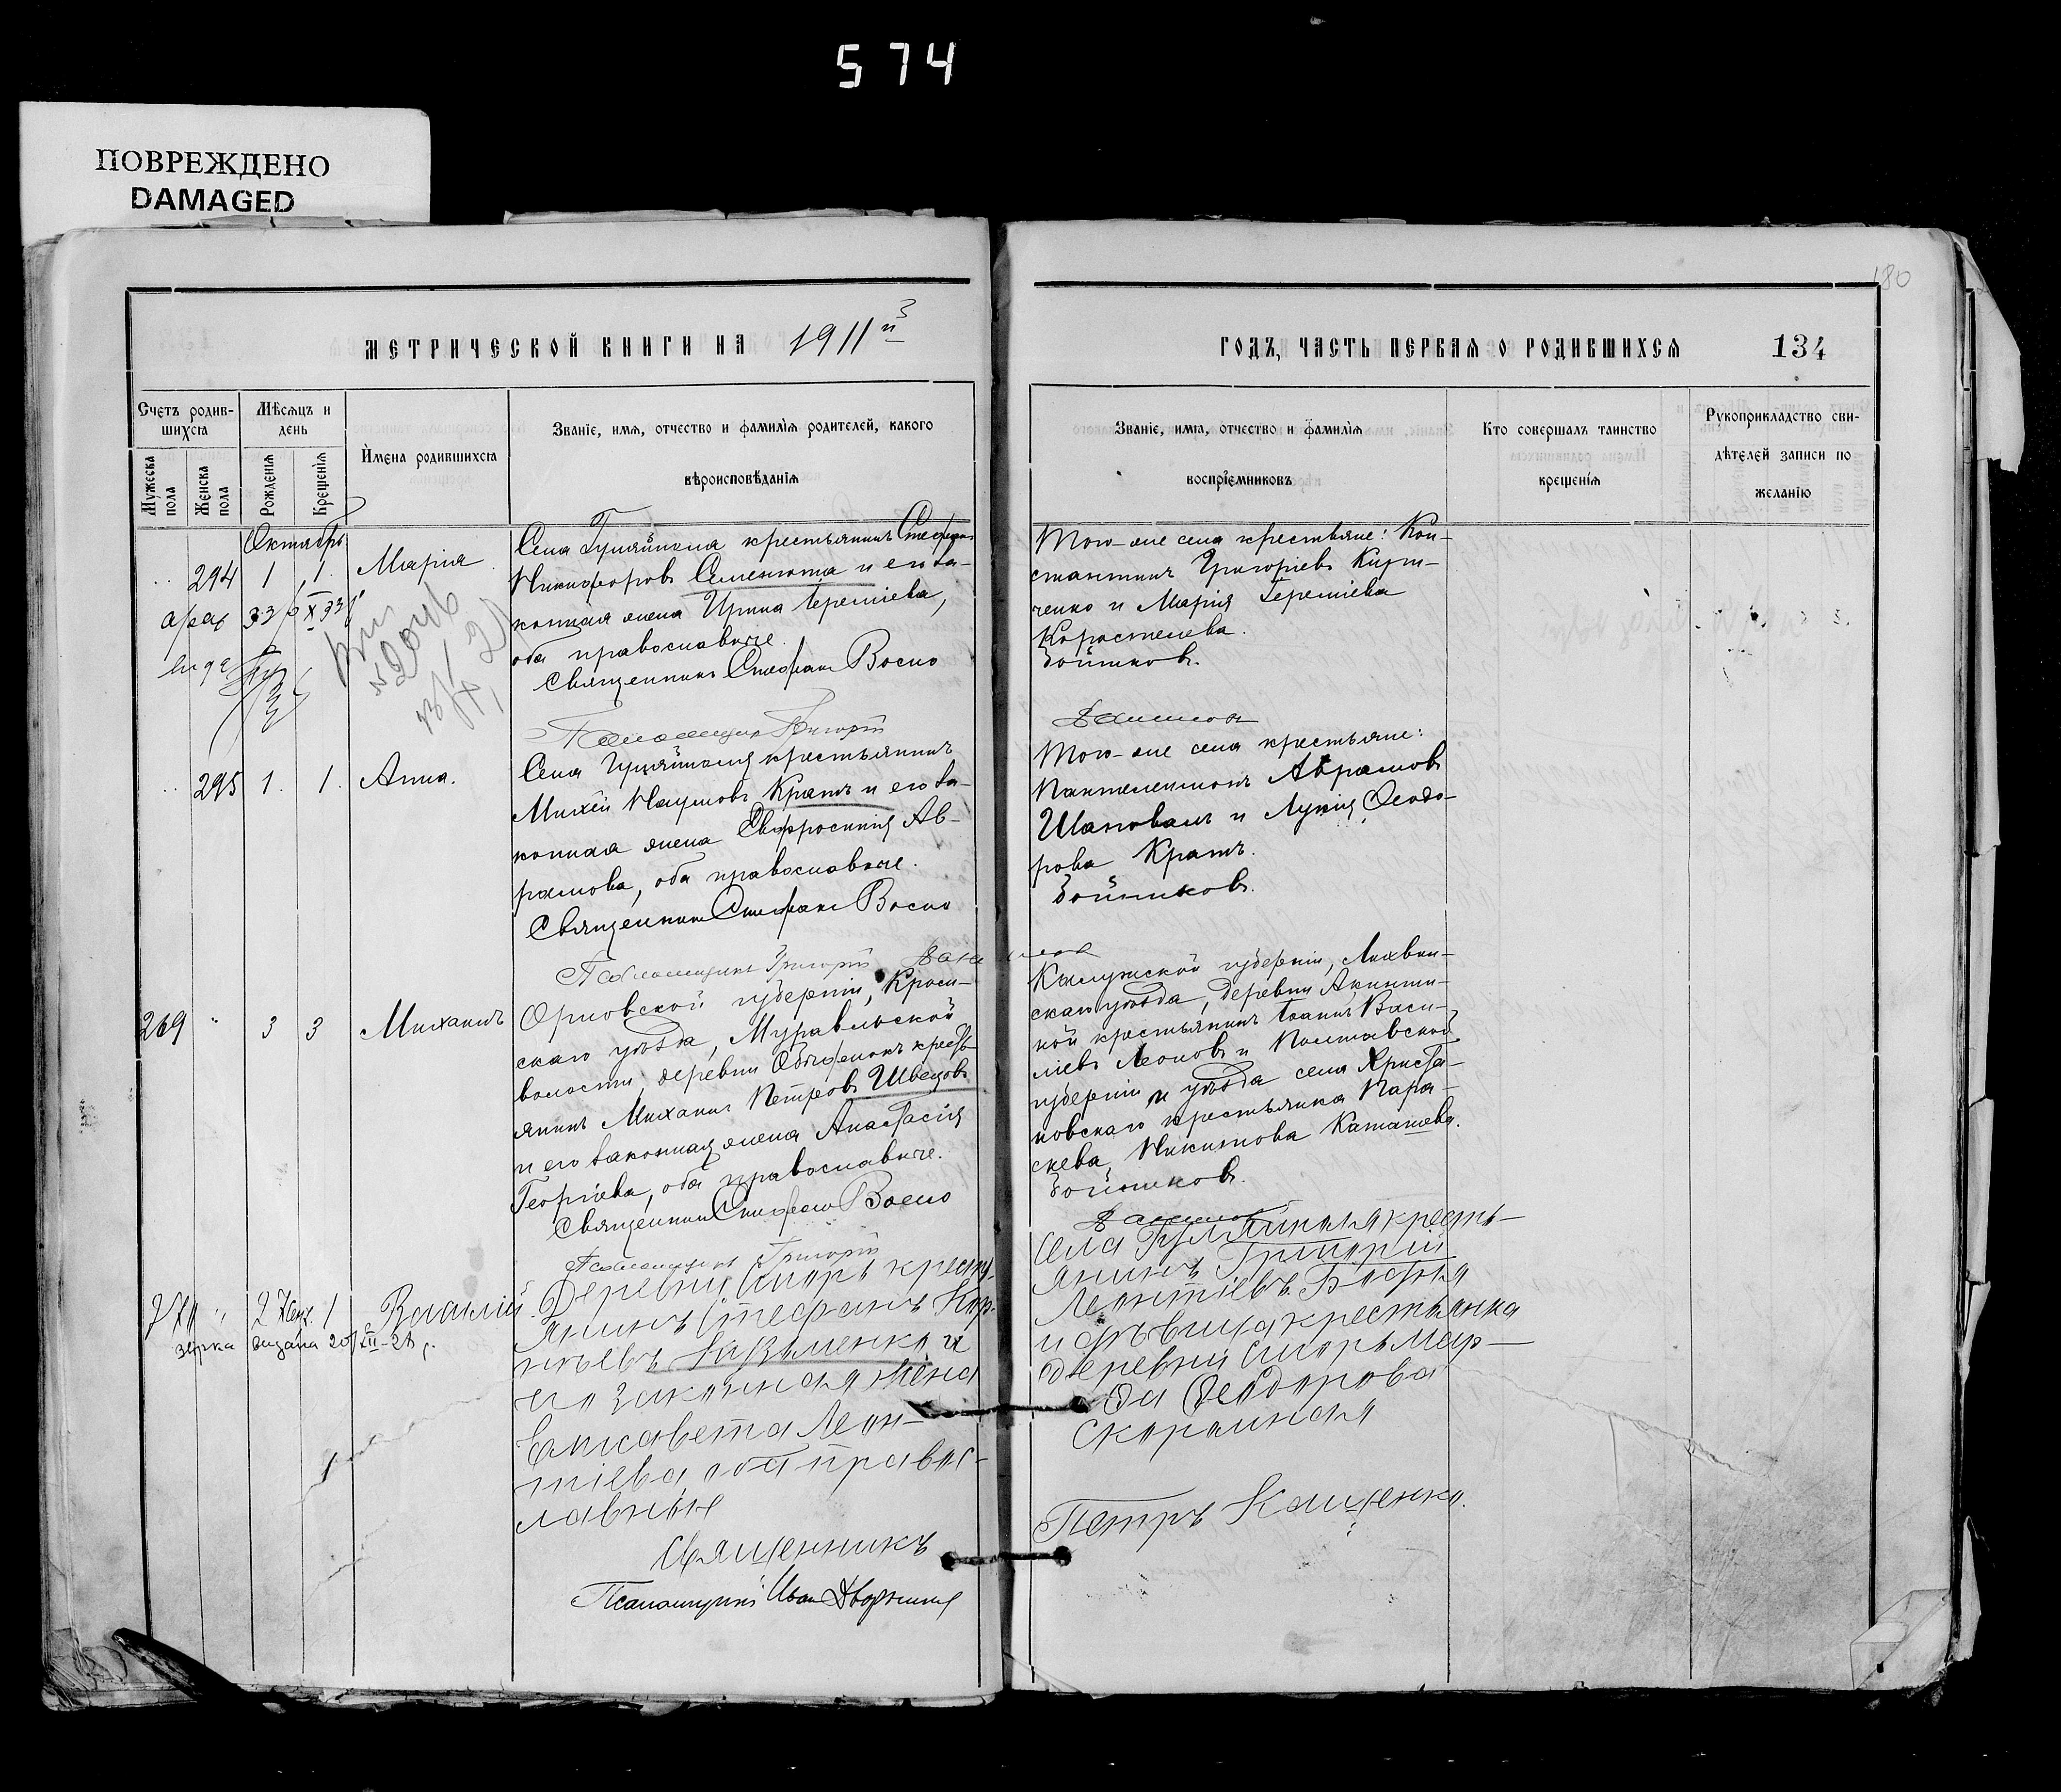 574
ПОВРЕЖДЕНО
DAMAGED
180
МЕТРИЧЕСКОЙ КНИГИ НА 1911й
ГОДЪ, ЧАСТЬ ПЕРВАЯ О РОДИВШИХСЯ 134
Счетъ родив-
шихся
Мужеска пола
Женска пола
Мѣсяцъ и
день
Рожденія
Крещенія
Имена родившихся
Званіе, имя, отчество и фамилія родителей, какого
вѣроисповѣданія
Званіе, имя, отчество и фамилія
воспріемниковъ
Кто совершалъ таинство
крещенія
Рукоприкладство сви-
дѣтелей записи по
желанію
Октябрь
294 1 1. Марія
Села Гуляйполя крестьянинъ Стефанъ
Никифоровъ Семенюта и его за-
конная жена Ирина Терентіева,
оба православные.
Священникъ Стефанъ Воско
Псаломщикъ Григорій
Того-же села крестьяне: Кон-
стантинъ Григоріевъ Кири-
ченко и Марія Терентіева
Коростелева.
295 1. 1. Анна.
Села Гуляйполя крестьянинъ
Михей Наумовъ Кратъ и его за-
конная жена Евфросинія Ав-
рамова, оба православные.
Священникъ Стефанъ Воско
Псаломщикъ Григорій
Того-же села крестьяне:
Пантелеимонъ Аврамовъ
Шаповалъ и Лукія Ѳеодо-
рова Кратъ.
269 " 3 3 Михаилъ
Орловской губерніи, Кром-
скаго уѣзда, Муравльской
волости, деревни крестъ-
янинъ Михаилъ Петровъ Швецовъ
и его законная жена Анастасія
Георгіева, оба православные.
Священникъ Стефанъ Воско
Псаломщикъ Григорій
Калужской губерніи, Лихвин-
скаго уѣзда, деревни
кой крестьянинъ Іоаннъ Васи-
ліевъ Леоновъ и Полтавской
губерніи и уѣзда села Христа-
новскаго крестьянка Пара-
скева Никитова
270 " 2 1 Василій
выдана 20/XII-28 г.
Деревни крестъ-
янинъ Стефанъ Кор-
нѣевъ Кузьменко и
его законная жена
Елисавета Леон-
тіева оба правос-
лавные
Священникъ
Псаломщикъ Иван
Села Гуляйполя крестъ-
янинъ Григорій
Леонтіевъ
и дѣвица крестьянка
деревни Мар-
ѳа Ѳеодорова
Петръ Кащенко.